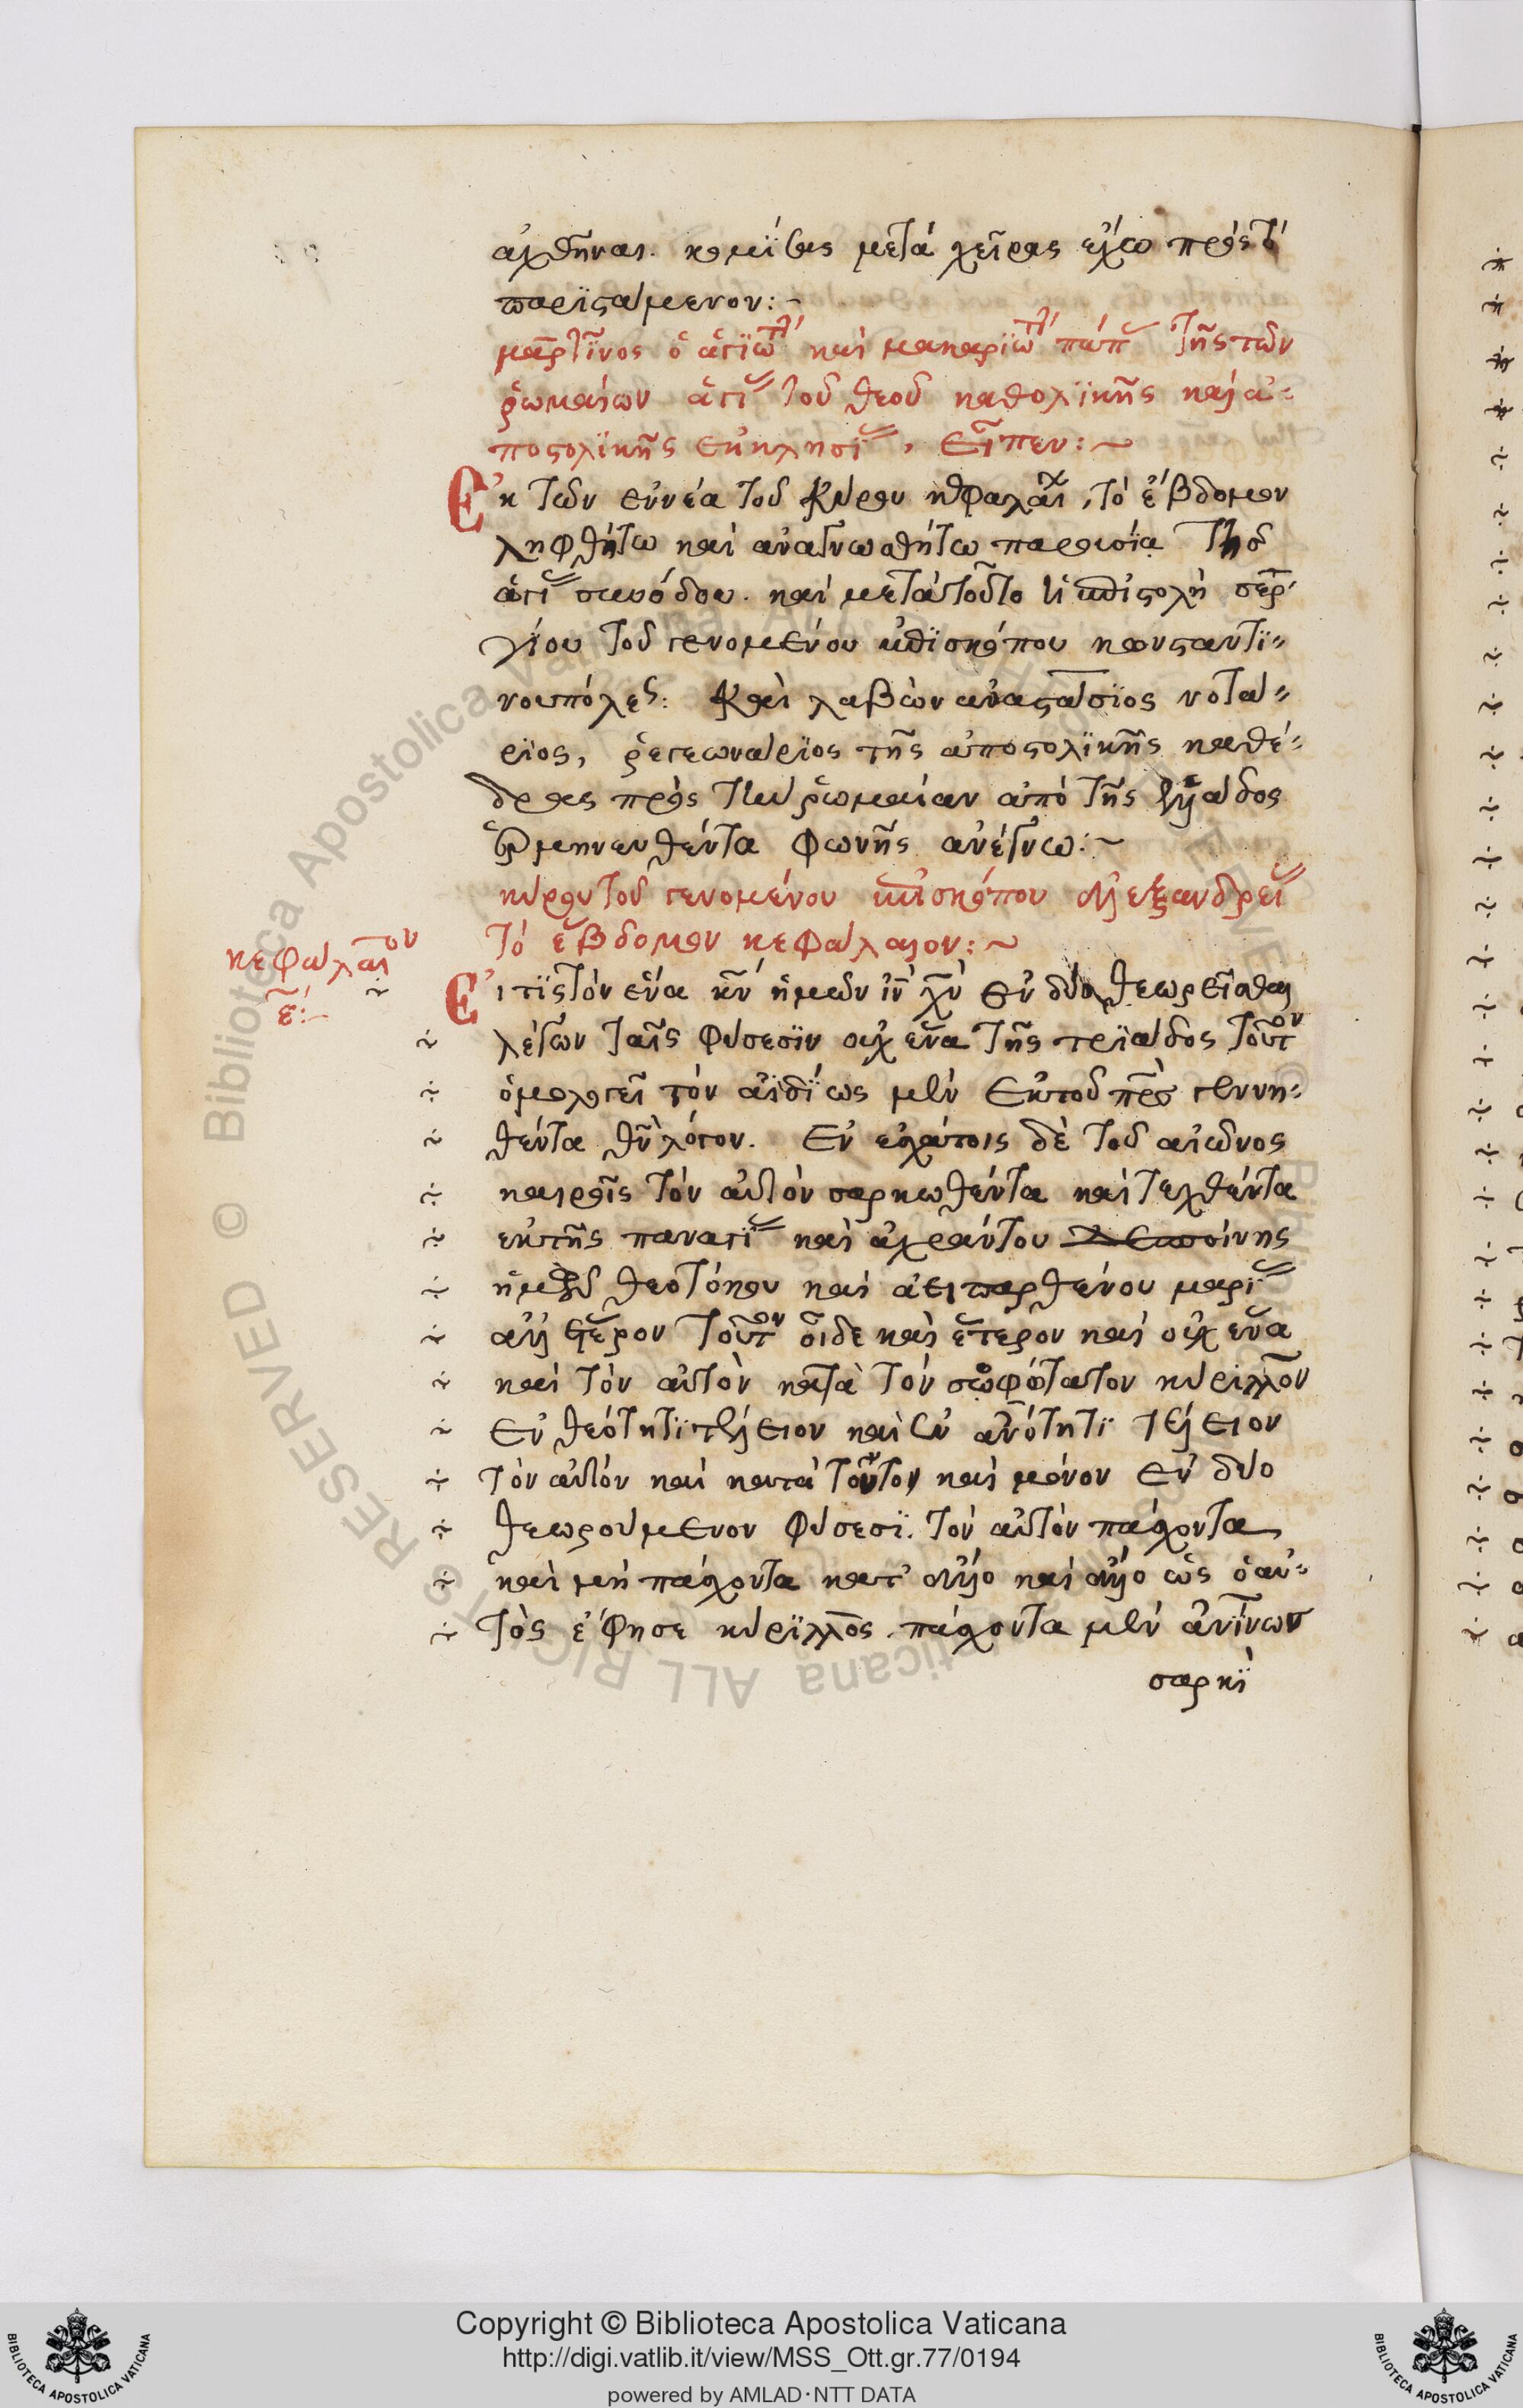 αχθῆναι. κομίσας μετὰ χεῖρας ἔχω πρὸς τὸ
παριστάμενον:~
μαρτῖνος ὁ ἁγιώτ καὶ μακαριώτ πάπ τῆς τῶν
ῥωμαίων ἁγί τοῦ θεοῦ καθολικῆς καὶ ἀ-
ποστολικῆς ἐκκλησί, εἶπεν:~
Ἐκ τῶν ἐννέα τοῦ Κύρου κεφαλαί, τὸ ἕβδομον
ληφθήτω καὶ ἀναγνωσθήτω παρουσία τῆς
ἁγί συνόδου. καὶ μετὰ τοῦτο ἡ ἐπιστολὴ σεργ
ίου τοῦ γενομένου ἐπισκόπου κωνσταντι-
νουπόλεως: Καὶ λαβὼν ἀναστάσιος νοτά-
ριος, ῥεγεωνάριος τῆς ἀποστολικῆς καθέ-
δρας πρὸς τὴν ῥωμαίαν ἀπὸ τῆς ἑλλάδος
ἑρμηνευθέντα φωνῆς ἀνέγνω:~
κύρου τοῦ γενομένου ἐπισκόπου ἀλεξανδρεί
τὸ ἕβδομον κεφάλαιον:~
κεφάλαιον
Εἴ τις τὸν ἕνα κν ἡμῶν ιν χν ἐν δύο θεωρεῖσθαι
λέγων ταῖς φύσεσιν οὐχ ἕνα τῆς τριάδος τοῦτον
ὁμολογεῖ τὸν ἀϊδίως μὲν ἐκ τοῦ πρς γεννη-
θέντα θν λόγον. Ἐν ἐσχάτοις δὲ τοῦ αἰῶνος
καιροῖς τὸν αὐτὸν σαρκωθέντα καὶ τεχθέντα
ἐκ τῆς παναγί καὶ ἀχράντου δεσποίνης
ἡμῶν θεοτόκου καὶ ἀειπαρθένου μαρί
ἀλλ' ἕτερον τοῦτον οἶδε καὶ ἕτερον καὶ οὐχ ἕνα
καὶ τὸν αὐτὸν κατὰ τὸν σοφώτατον κύριλλον
ἐν θεότητι τέλειον καὶ ἐν ἀνότητι τέλειον
τὸν αὐτὸν καὶ κατὰ τοῦτον καὶ μόνον ἐν δύο
θεωρούμενον φύσεσι. τὸν αὐτὸν πάσχοντα
καὶ μὴ πάσχοντα κατ' ἄλλο καὶ ἄλλο ὡς ὁ αὐ-
τὸς ἔφησε κύριλλος. πάσχοντα μὲν ἀνίνως
σαρκὶ
Copyright © Biblioteca Apostolica Vaticana
http://digi.vatlib.it/view/MSS_Ott.gr.77/0194
powered by AMLAD·NTT DATA